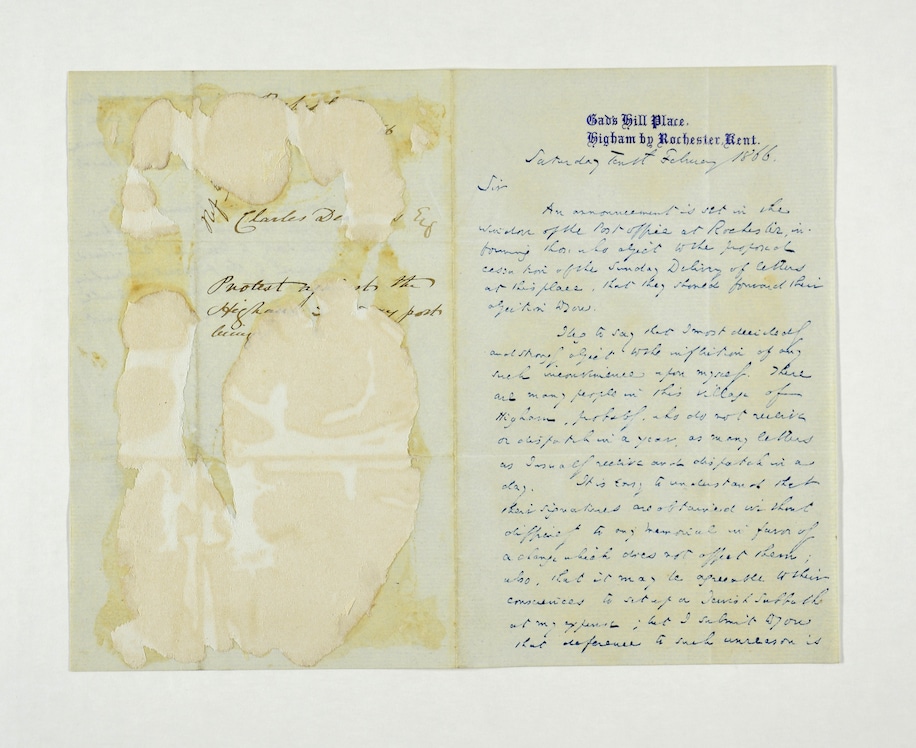 Charles D s Esq
Protest ag the
High post
being
Gad's Hill Place,
Higham by Rochester, Kent.
Saturday Tenth February 1866.
Sir
An announcement is set in the
window of the Post office at Rochester, in-
forming those who object to the proposed
cessation of the Sunday Delivery of letters
at this place, that they should forward their
objection to you.
I beg to say that I most decidedly
and strongly object to the infliction of any
such inconvenience upon myself. There
are many people in this village of
Higham, probably, who do not receive
or dispatch in a year, as many letters
as I usually receive and dispatch in a
day. It is easy to understand that
their signatures are obtained without
difficulty to any memorial in favor of
a change which does not affect them;
also, that it may be agreeable to their
consciences to set up a Jewish Sabbath
at my expense; but I submit to you
that deference to such unreason is